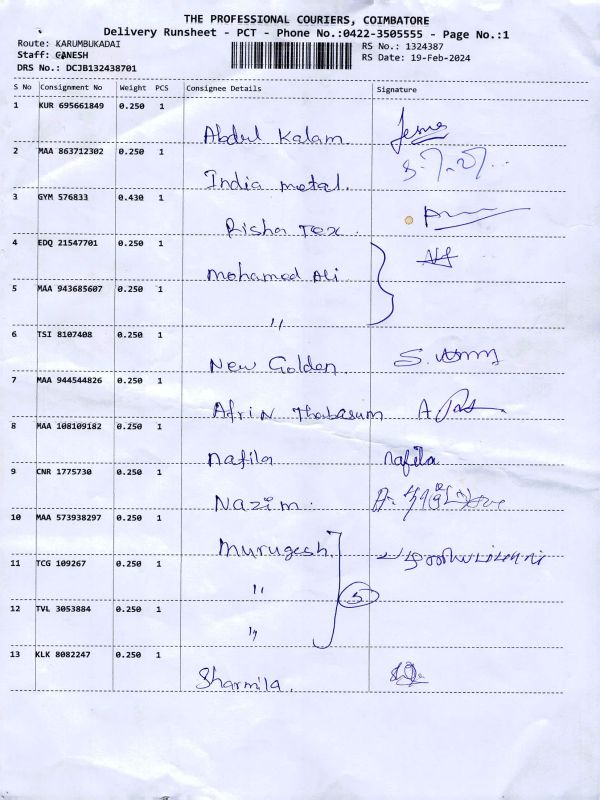 THE PROFESSIONAL COURIERS, COIMBATORE
Delivery Runsheet - PCT - Phone No.:0422-3505555 - Page No.:1
Route: KARUMBUKADAI
RS No.: 1324387
Staff: GANESH
RS Date: 19-Feb-2024
DRS No.: DCJB132438701
S No Consignment No Weight PCS Consignee Details Signature
1 KUR 695661849 0.250 1
Abdul Kalam
2 MAA 863712302 0.250 1
India metal.
3 GYM 576833 0.430 1
Risha Tex
4 EDQ 21547701 0.250 1
Mohamed Ali
5 MAA 943685607 0.250 1
"
6 TSI 8107408 0.250 1
New Golden
7 MAA 944544826 0.250 1
Afrin Thabasum
8 MAA 108109182 0.250 1
Nafila nafila
9 CNR 1775730 0.250 1
Nazim.
10 MAA 573938297 0.250 1
Murugesh
11 TCG 109267 0.250 1
"
5
12 TVL 3053884 0.250 1
"
13 KLK 8082247 0.250 1
Sharmila.